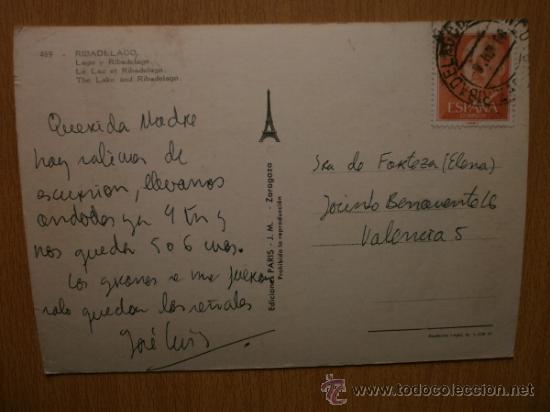 469 - RIBADELAGO.
Lago y Ribadelago.
Le Lac et Ribadelago.
The Lake and Ribadelago.
Querida Madre
hoy salimos de
escursion, llevamos
andados ya 4 km y
nos quedan 5 o 6 mas.
Los granos se me fueron
solo quedan las señales
José Luis
Ediciones PARIS - J. M. - Zaragoza
Prohibida la reproducción
ESPAÑA
CORREOS
Sra de Forteza (Elena)
Jacinto Benavente 16
Valencia 5
todocoleccion
www.todocoleccion.net